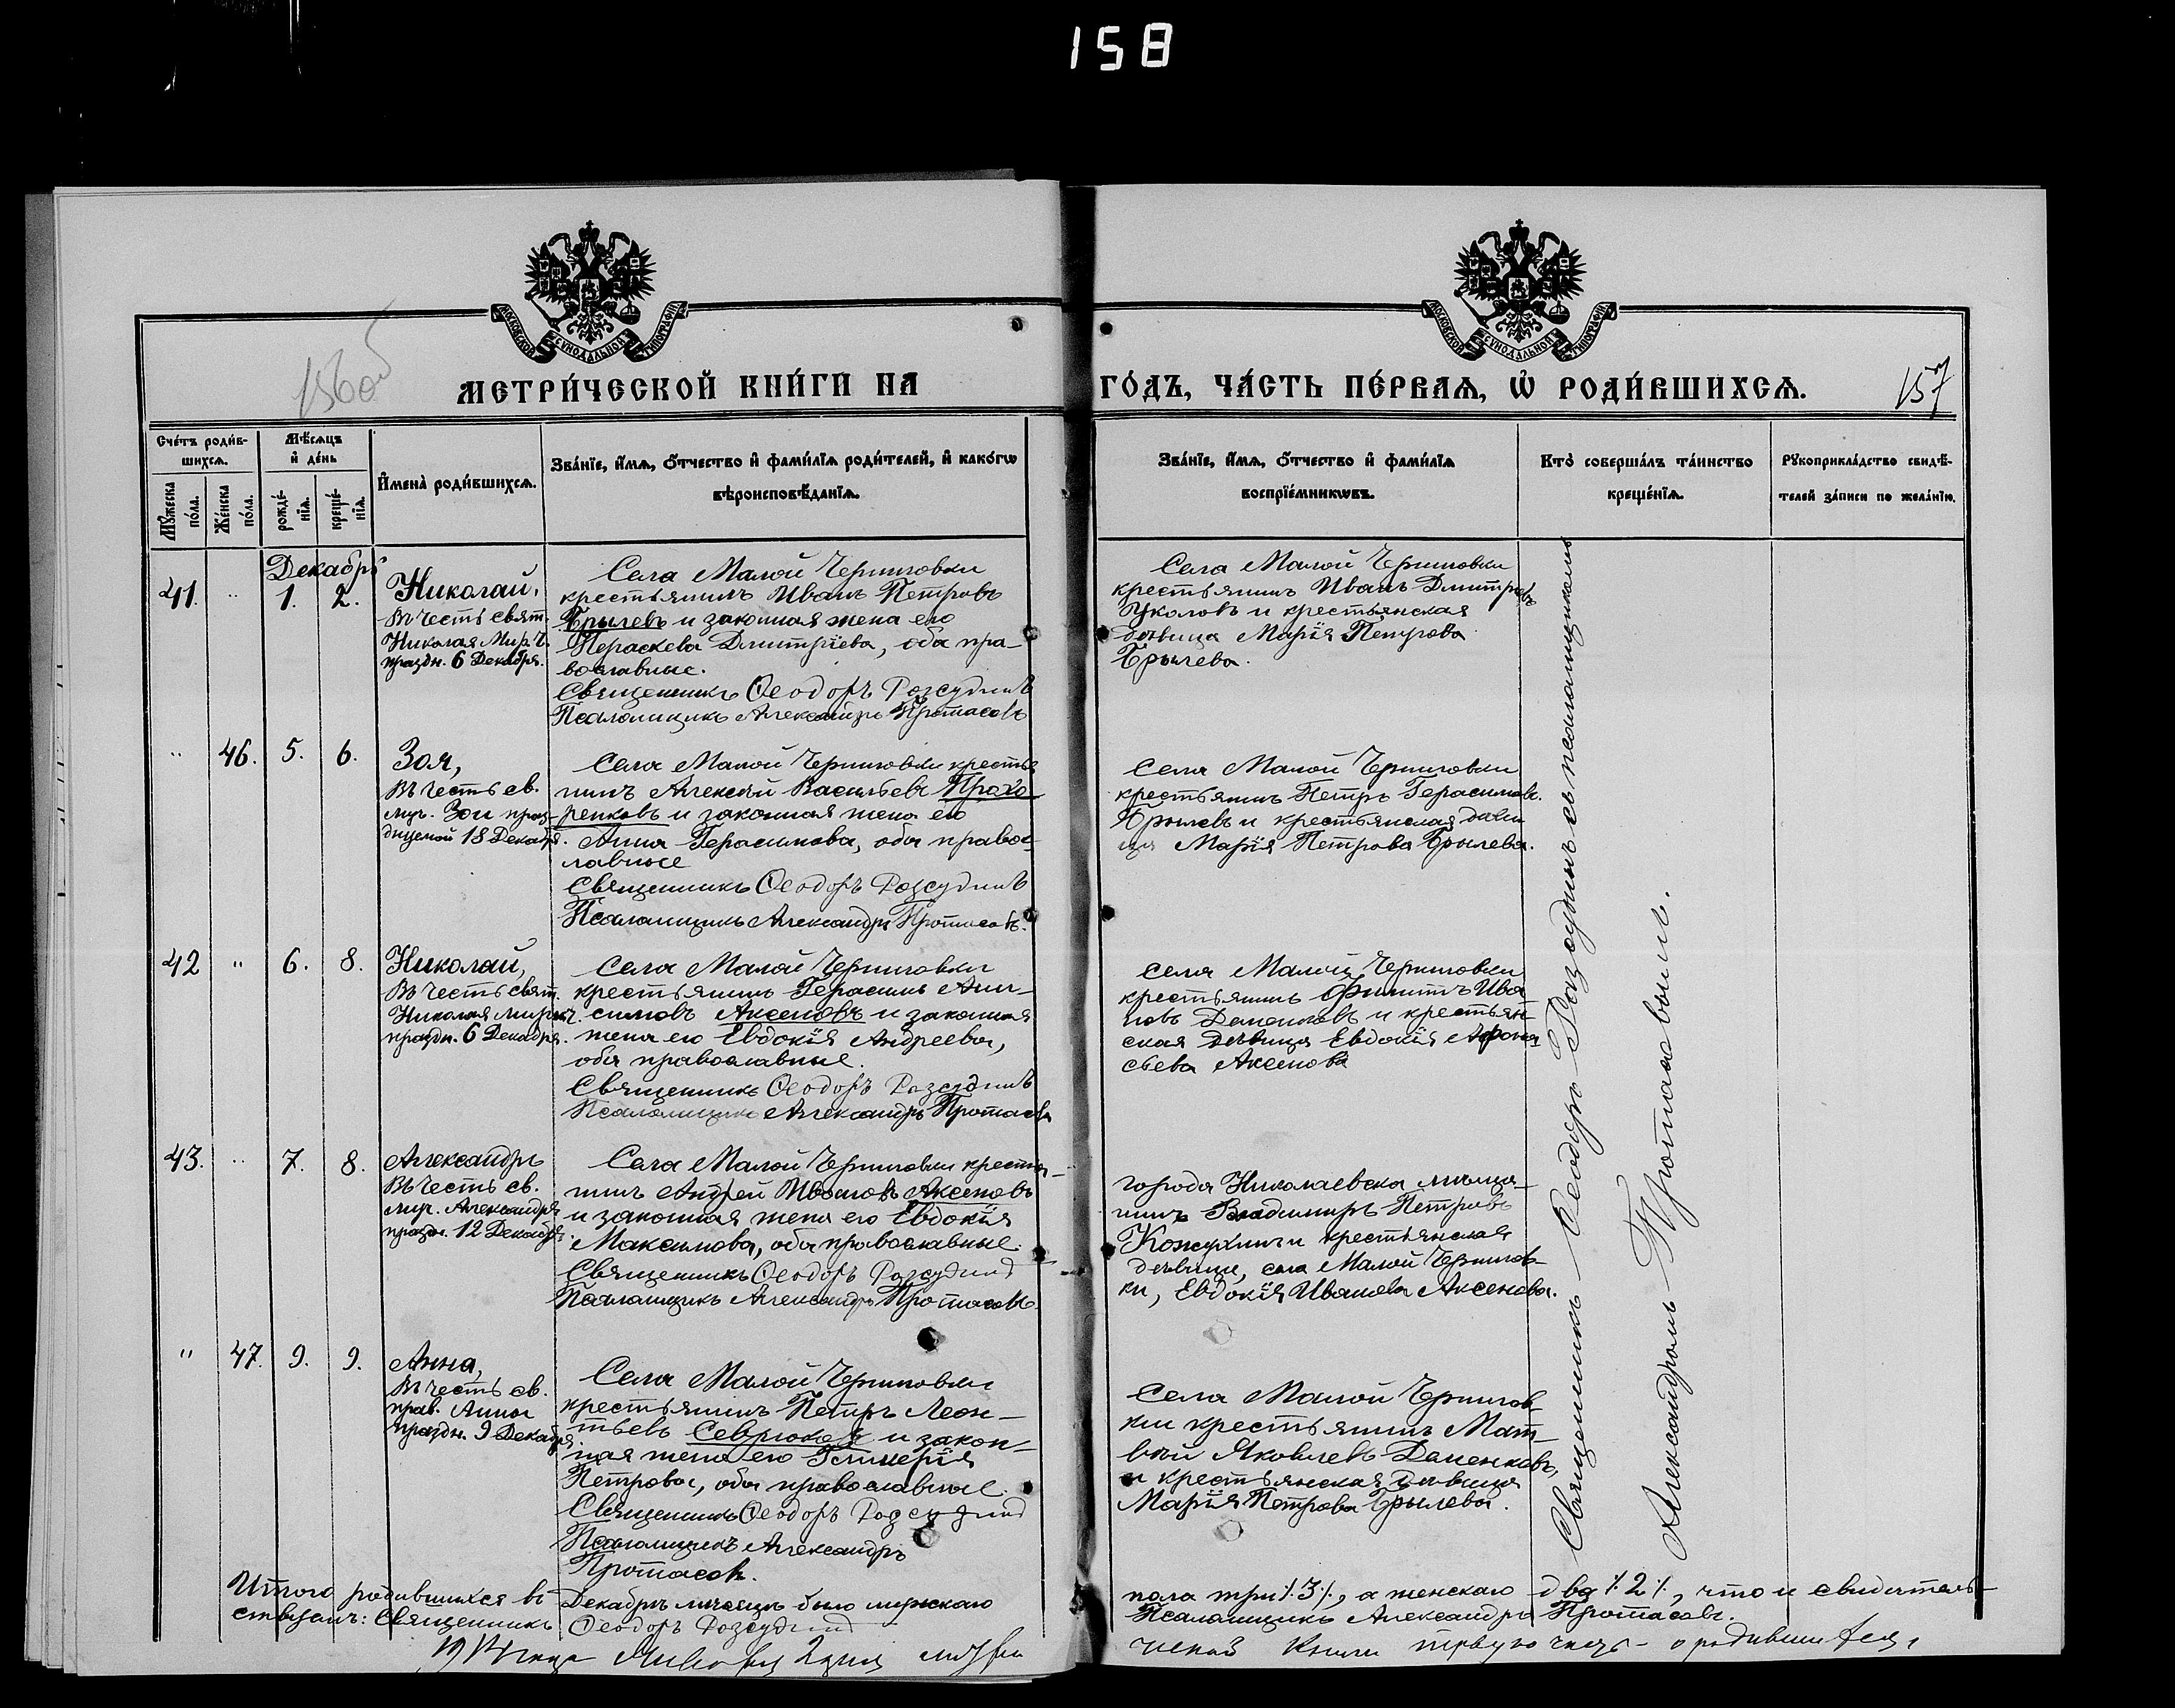 158
МОСКОВСКОЙ СѴНОДАЛЬНОЙ ТИПОГРАФІИ
МОСКОВСКОЙ СѴНОДАЛЬНОЙ ТИПОГРАФІИ
156об
МЕТРИ́ЧЕСКОЙ КНИ́ГИ НА
ГО́ДЪ, ЧА́СТЬ ПЕ́РВАѦ, Ѡ҆ РОДИ́ВШИХСѦ.
157
Сче́тъ роди́в-
шихсѧ.
Мꙋ́жеска по́ла.
Же́нска по́ла.
Мѣ́сѧцъ и҆ де́нь
рожде́-нїѧ.
креще́-нїѧ.
И҆мена̀ роди́вшихсѧ.
Зва́нїе, и҆́мѧ, ѻ҆́тчество и҆ фами́лїѧ роди́телей, и҆ како́гѡ
вѣроисповѣ́данїѧ.
Зва́нїе, и҆́мѧ, ѻ҆́тчество и҆ фами́лїѧ
воспрїе́мникѡвъ.
Кто̀ соверша́лъ та́инство
креще́нїѧ.
Рꙋкоприкла́дство свидѣ́-
телей за́писи по жела́нїю.
Декабрь
41. " 1. 2.
Николай,
Въ честь свят.
Николая Мир. Ч.
праздн. 6 Декабря.
Села Малой Черниговки
крестьянинъ Иванъ Петровъ
Брылевъ и законная жена его
Параскева Димитріева, оба пра-
вославные.
Священникъ Ѳеодоръ Розсудинъ
Псаломщикъ Александръ Протасовъ
Села Малой Черниговки
крестьянинъ Иванъ Дмитровъ
Уколовъ и крестьянская
дѣвица Марія Петрова
Брылева.
" 46. 5. 6.
Зоя,
Въ честь св.
муч. Зои праз-
днуемой 18 Декабря.
Села Малой Черниговки крестья
нинъ Алексѣй Васильевъ Прохо
ренковъ и законная жена его
Анна Герасимова, оба правос-
лавные
Священникъ Ѳеодоръ Розсудинъ
Псаломщикъ Александръ Протасовъ.
Села Малой Черниговки
крестьянинъ Петръ Герасимовъ
Брылевъ и крестьянская дѣви
ца Марія Петрова Брылева.
42 " 6. 8.
Николай,
Въ честь свят.
Николая мирл. ч.
праздн. 6 Декабря.
Села Малой Черниговки
крестьянинъ Герасимъ Ани-
симовъ Аксеновъ и законная
жена его Евдокія Андреева,
оба православные.
Священникъ Ѳеодоръ Розсудинъ
Псаломщикъ Александръ Протасовъ
Села Малой Черниговки
крестьянинъ Филиппъ Ива
новъ Даменковъ и крестьян-
ская дѣвица Евдокія Афона
сьева Аксенова
43. " 7. 8.
Александръ
Въ честь св.
муч. Александра
праздн. 12 Декабря.
Села Малой Черниговки крестья-
нинъ Андрей Ивановъ Аксеновъ
и законная жена его Евдокія
Максимова, оба православные.
Священникъ Ѳеодоръ Розсудинъ
Псаломщикъ Александръ Протасовъ
города Николаевска мѣща-
нинъ Владимиръ Петровъ
и крестьянская
дѣвица, села Малой Чернигов-
ки, Евдокія Иванова Аксенова.
" 47. 9. 9.
Анна,
Въ честь св.
прав. Анны
праздн. 9 Декабря
Села Малой Черниговки
крестьянинъ Петръ Леон-
тьевъ Севрюковъ и закон-
ная жена его Гликерія
Петрова, оба православные.
Священникъ Ѳеодоръ Розсудинъ
Псаломщикъ Александръ
Протасовъ.
Села Малой Чернигов-
ки крестьянинъ Мат-
вѣй Яковлевъ Даменковъ,
и крестьянская дѣвица
Марія Петрова Брылева.
Священникъ Ѳеодоръ Розсудинъ съ псаломщикомъ
Александромъ Протасовымъ.
Итого родившихся въ Декабрѣ мѣсяцѣ было мужскаго пола три /:3:/, а женскаго два /:2:/, что и свидѣтель-
ствуемъ: Священникъ Ѳеодоръ Розсудинъ Псаломщикъ Александръ Протасовъ.
книги первую часть о родившихся,